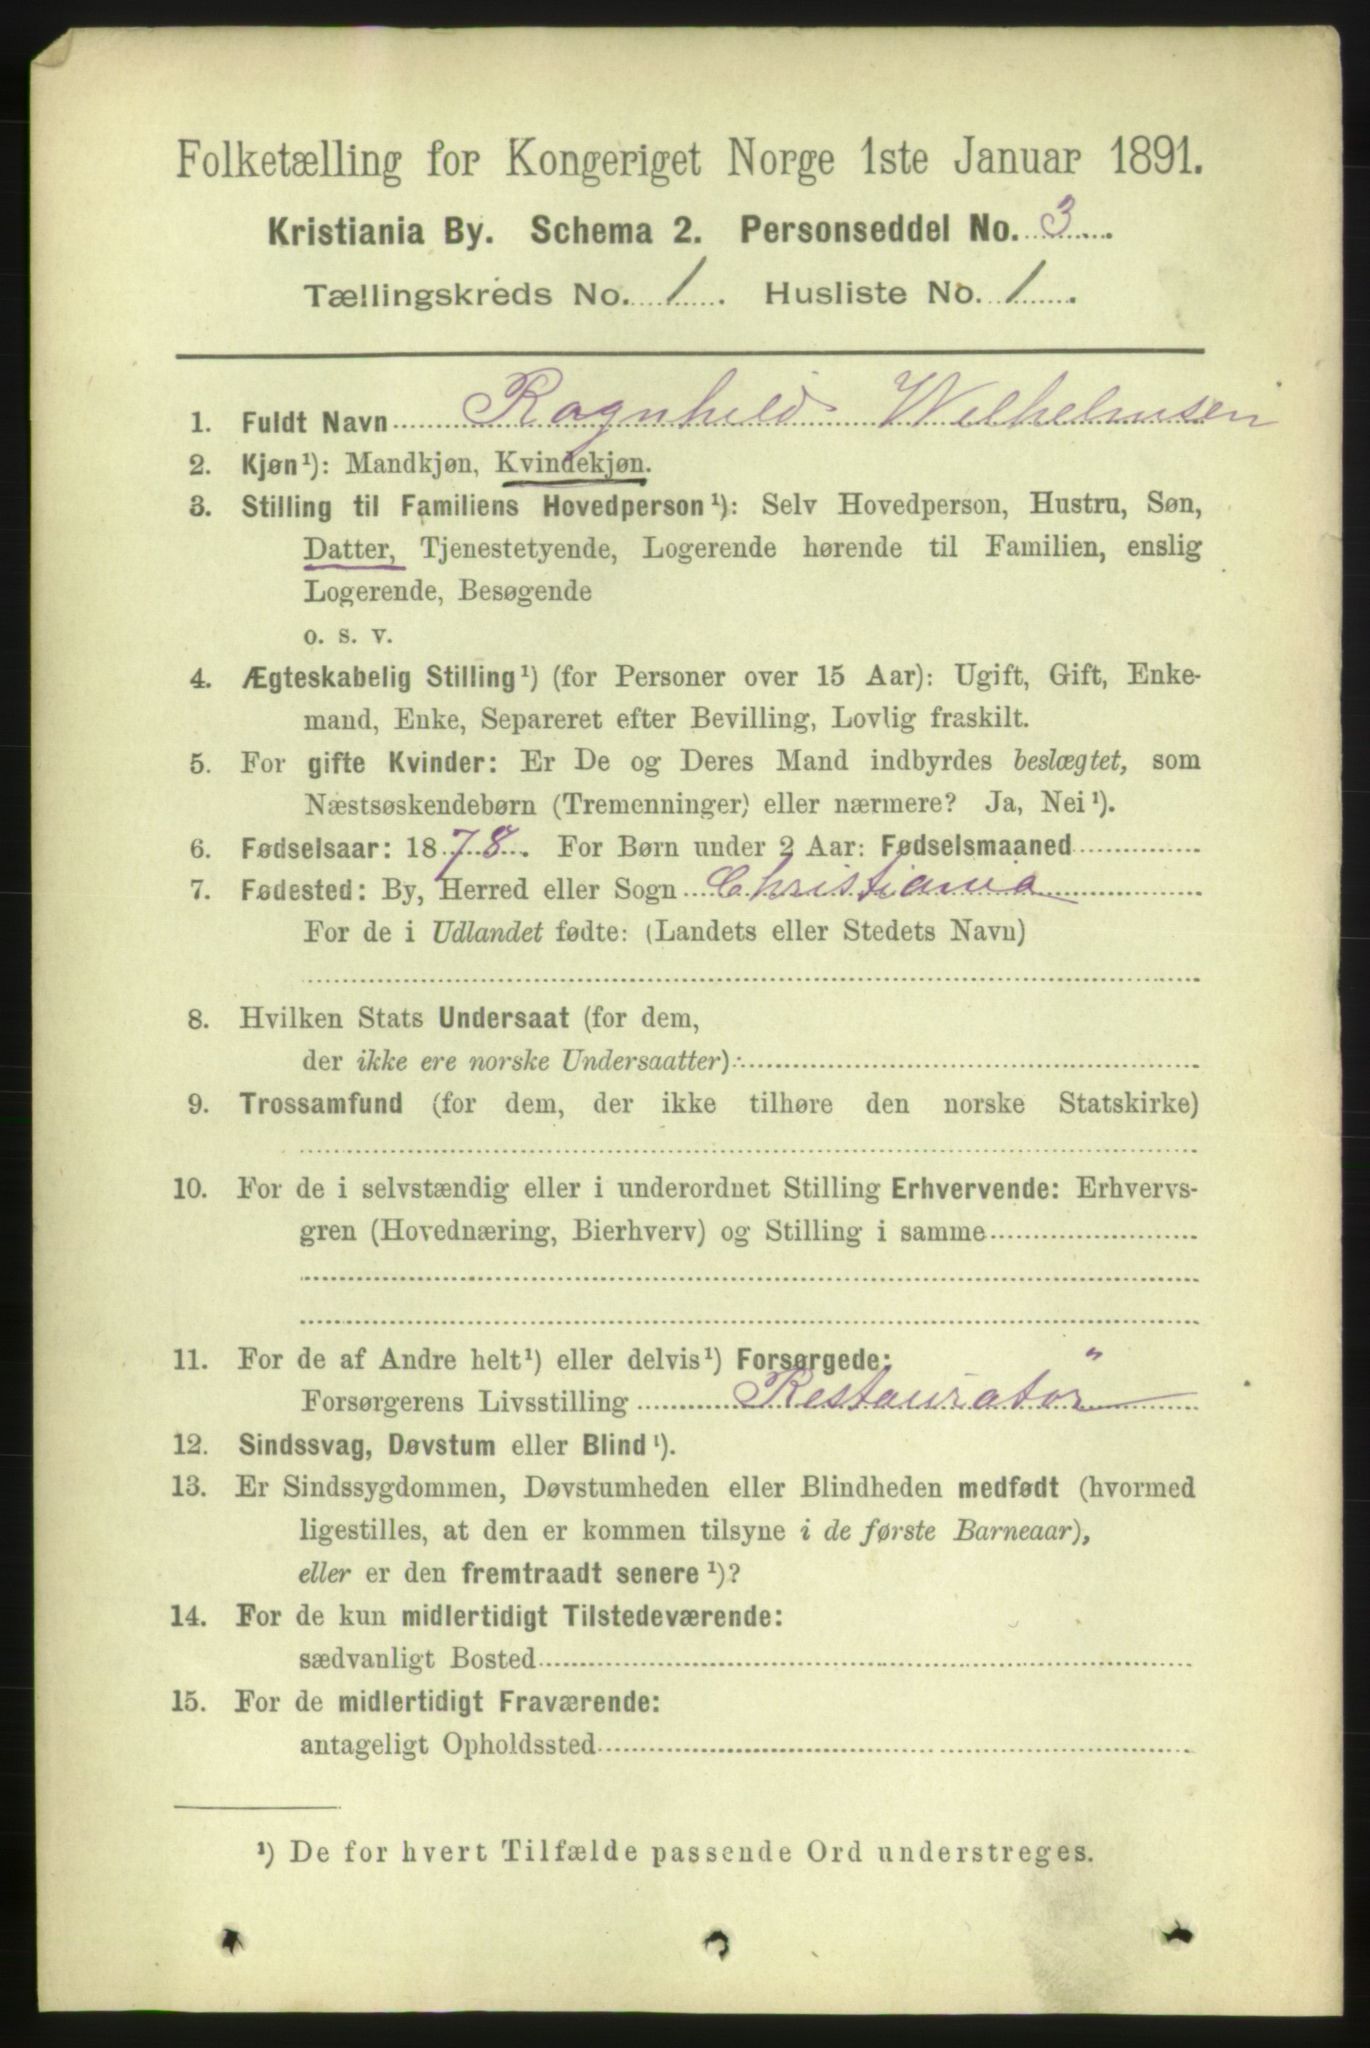 Folketælling for Kongeriget Norge 1ste Januar 1891.
Kristiania By. Schema 2. Personseddel No. 3
Tællingskreds No. 1. Husliste No. 1.
1. Fuldt Navn Ragnhild Wilhelmsen
2. Kjøn¹): Mandkjøn, Kvindekjøn.
3. Stilling til Familiens Hovedperson¹): Selv Hovedperson, Hustru, Søn,
Datter, Tjenestetyende, Logerende hørende til Familien, enslig
Logerende, Besøgende
o. s. v.
4. Ægteskabelig Stilling¹) (for Personer over 15 Aar): Ugift, Gift, Enke-
mand, Enke, Separeret efter Bevilling, Lovlig fraskilt.
5. For gifte Kvinder: Er De og Deres Mand indbyrdes beslægtet, som
Næstsøskendebørn (Tremenninger) eller nærmere? Ja, Nei¹).
6. Fødselsaar: 1878. For Børn under 2 Aar: Fødselsmaaned
7. Fødested: By, Herred eller Sogn Christiania
For de i Udlandet fødte: (Landets eller Stedets Navn)
8. Hvilken Stats Undersaat (for dem,
der ikke ere norske Undersaatter):
9. Trossamfund (for dem, der ikke tilhøre den norske Statskirke)
10. For de i selvstændig eller i underordnet Stilling Erhvervende: Erhvervs-
gren (Hovednæring, Bierhverv) og Stilling i samme
11. For de af Andre helt¹) eller delvis¹) Forsørgede:
Forsørgerens Livsstilling Restauratør
12. Sindssvag, Døvstum eller Blind¹).
13. Er Sindssygdommen, Døvstumheden eller Blindheden medfødt (hvormed
ligestilles, at den er kommen tilsyne i de første Barneaar),
eller er den fremtraadt senere¹)?
14. For de kun midlertidigt Tilstedeværende:
sædvanligt Bosted
15. For de midlertidigt Fraværende:
antageligt Opholdssted
¹) De for hvert Tilfælde passende Ord understreges.